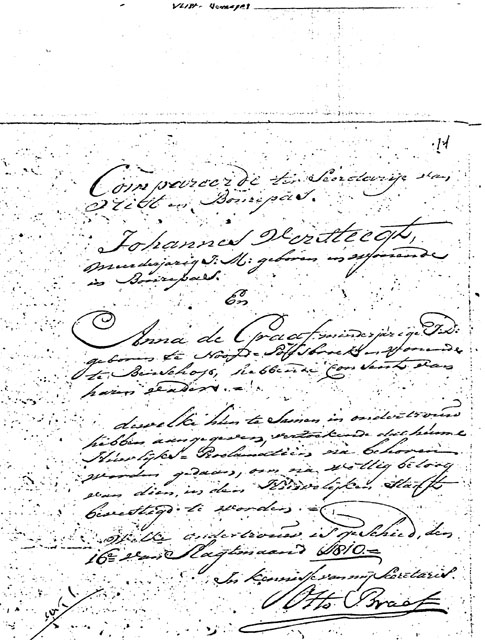 Vlist - Bonrepas
14
Compareerde ter Secretarije van
Vlist en Bonrepas.
Johannes Versteegt,
meerderjarig J: M: geboren en wonende
in Bonrepas.
En
Anna de Graaf minderjarige J: D:
geboren te en wonende
te Benschop, hebbende Consent van
haren vader. =
dewelke hun te samen in ondertrouw
hebben aangegeven, verzoekende dat hunne
Huwelijkse Proclamatien na behoren
worden gedaan, om na volbragte
van dien, in den Huwelijken Staat
bevestigd te worden. =
Welke ondertrouw is geschied, den
16e van Slagtmaand 1810. =
In kennisse van mij Secretaris.
Otto Braet